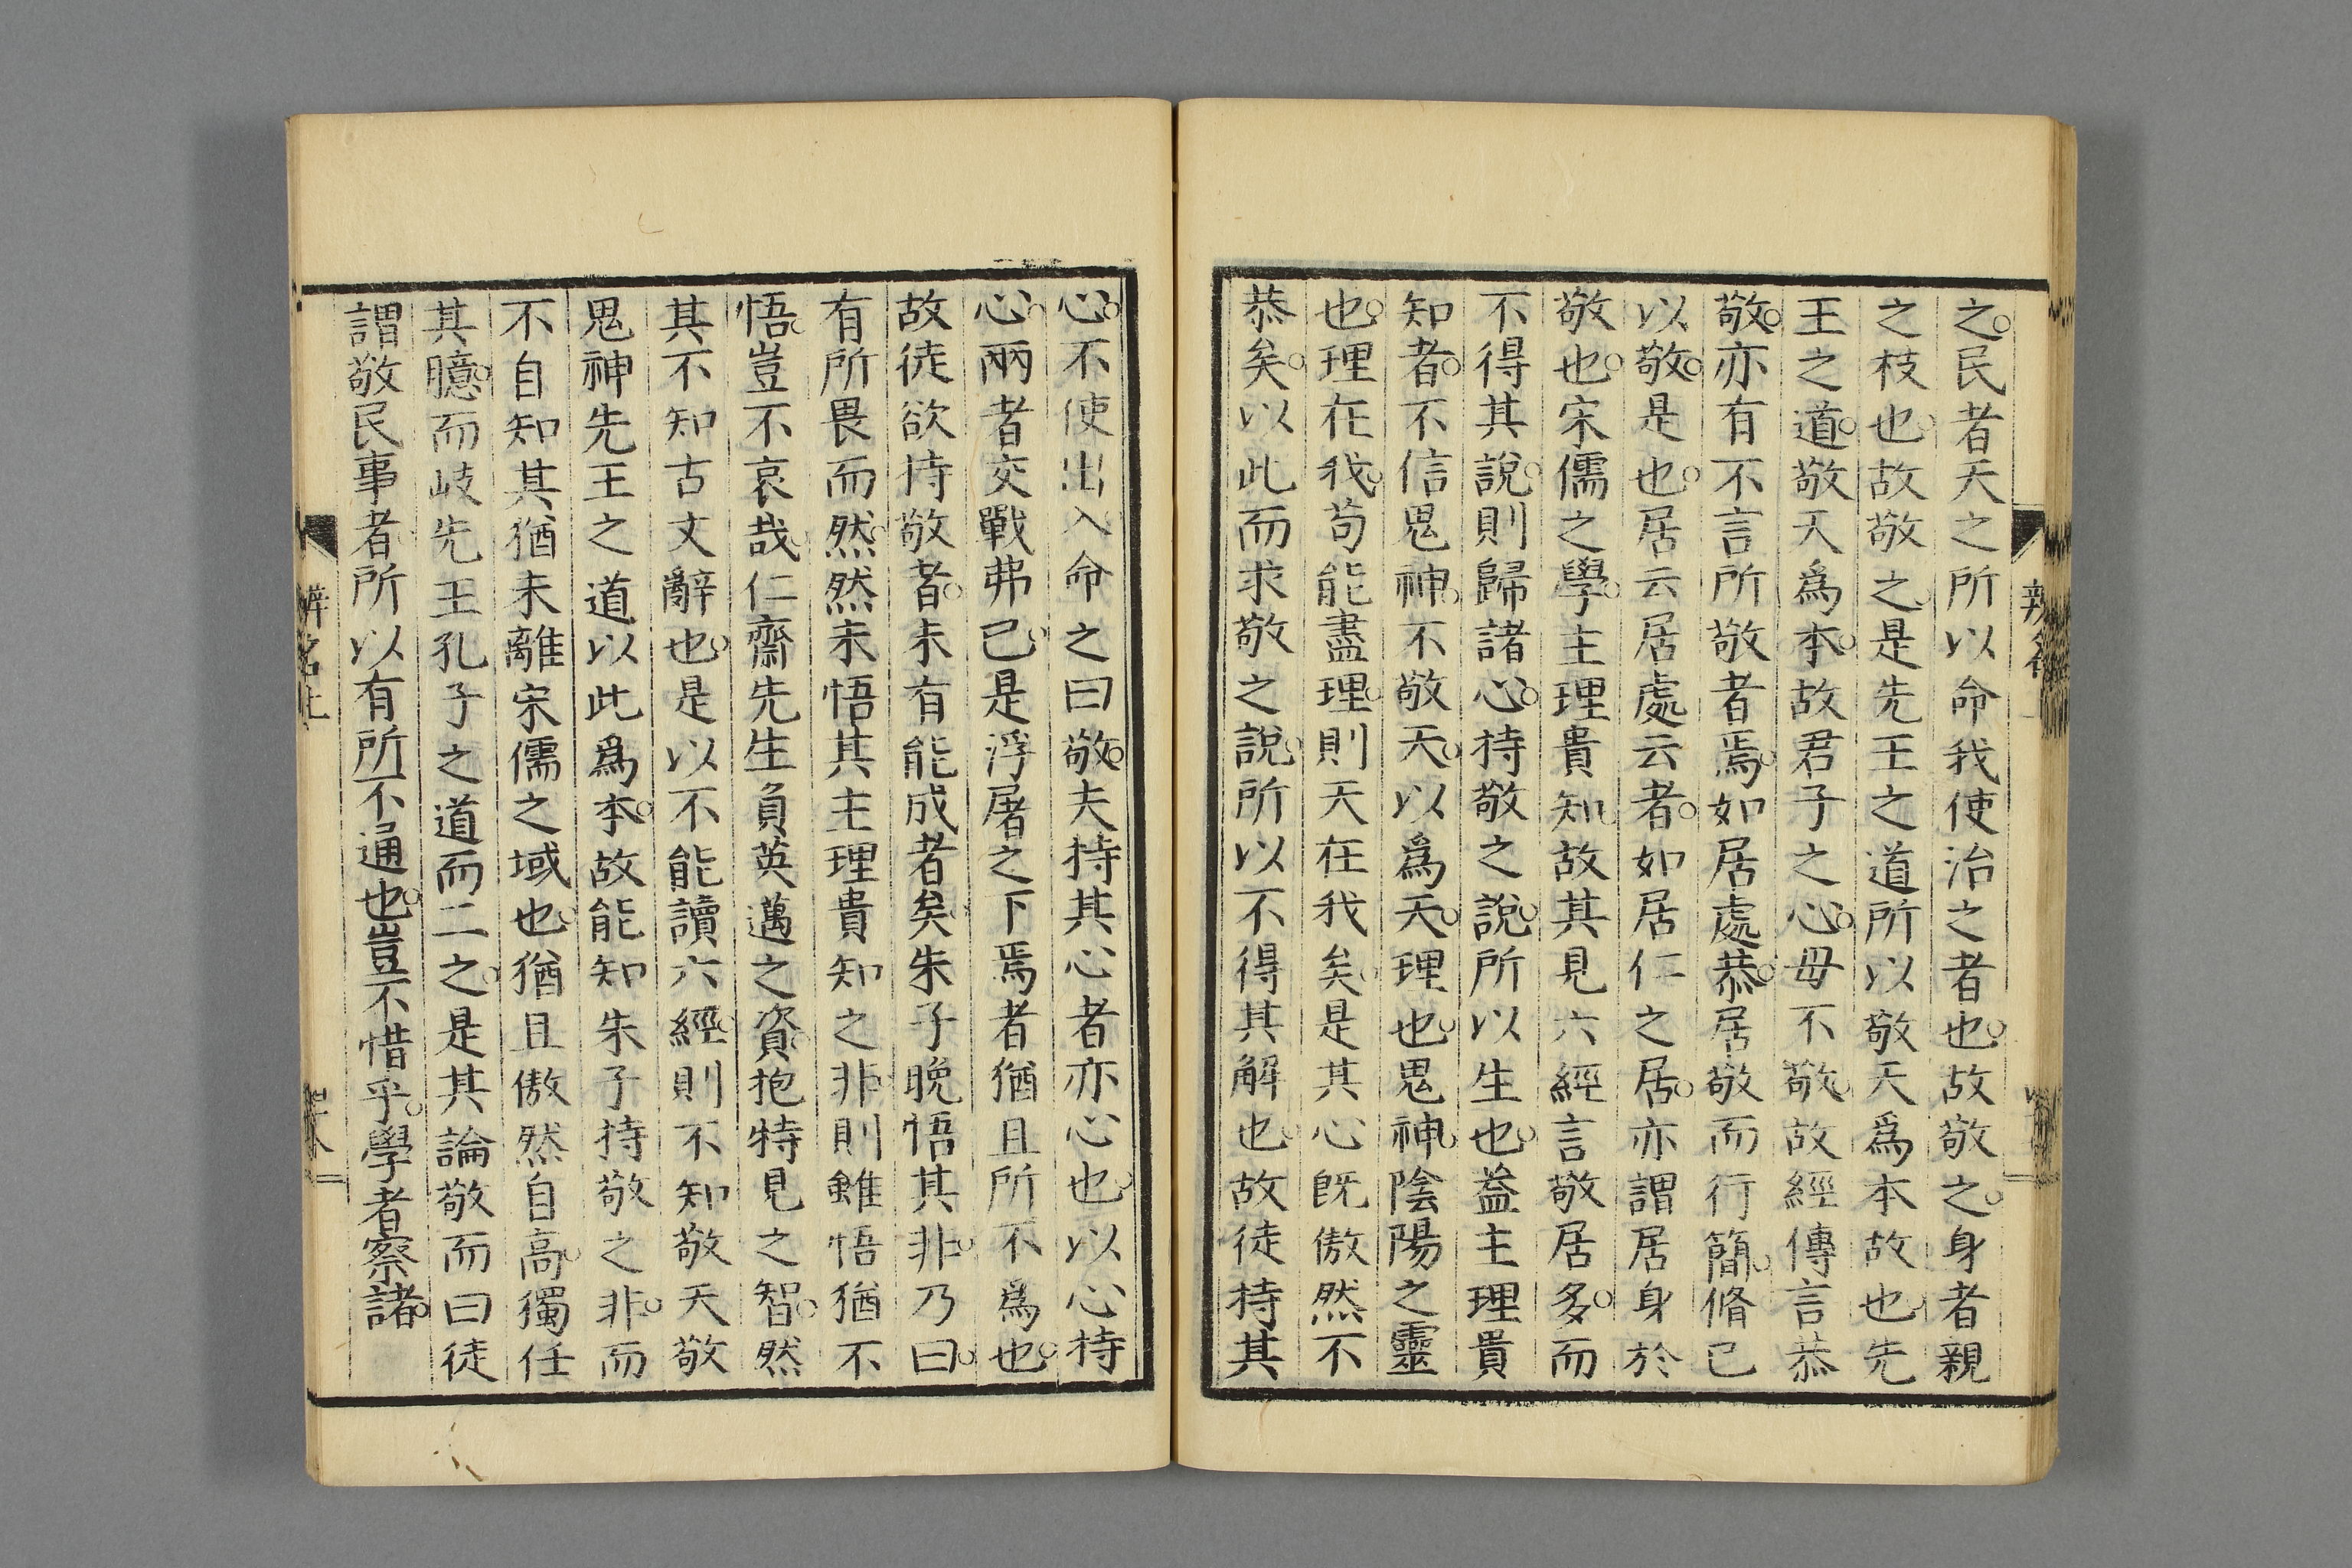 之。民者天之所以命我使治之者也。故敬之。身者親
之枝也。故敬之。是先王之道所以敬天爲本故也。先
王之道。敬天爲本。故君子之心。毋不敬。故經傳言恭
敬。亦有不言所敬者焉。如居處恭。居敬而行簡。脩己
以敬。是也。居云居處云者。如居仁之居。亦謂居身於
敬也。宋儒之學。主理貴知。故其見六經言敬居多。而
不得其說。則歸諸心。持敬之說。所以生也。葢主理貴
知者。不信鬼神。不敬天。以爲天。理也。鬼神。陰陽之靈
也。理在我。苟能盡理。則天在我矣。是其心旣傲然不
恭矣。以此而求敬之說。所以不得其解也。故徒持其
心。不使出入。命之曰敬。夫持其心者亦心也。以心持
心。兩者交戰弗已。是浮屠之下焉者猶且所不爲也。
故徒欲持敬者。未有能成者矣。朱子晚悟其非。乃曰。
有所畏而然。然未悟其主理貴知之非。則雖悟猶不
悟。豈不哀哉。仁齋先生負英邁之資。抱特見之智。然
其不知古文辭也。是以不能讀六經。則不知敬天敬
鬼神先王之道以此爲本。故能知朱子持敬之非。而
不自知其猶未離宋儒之域也。猶且傲然自高。獨任
其臆。而岐先王孔子之道而二之。是其論敬而曰徒
謂敬民事者。所以有所不通也。豈不惜乎。學者察諸。
辨名上